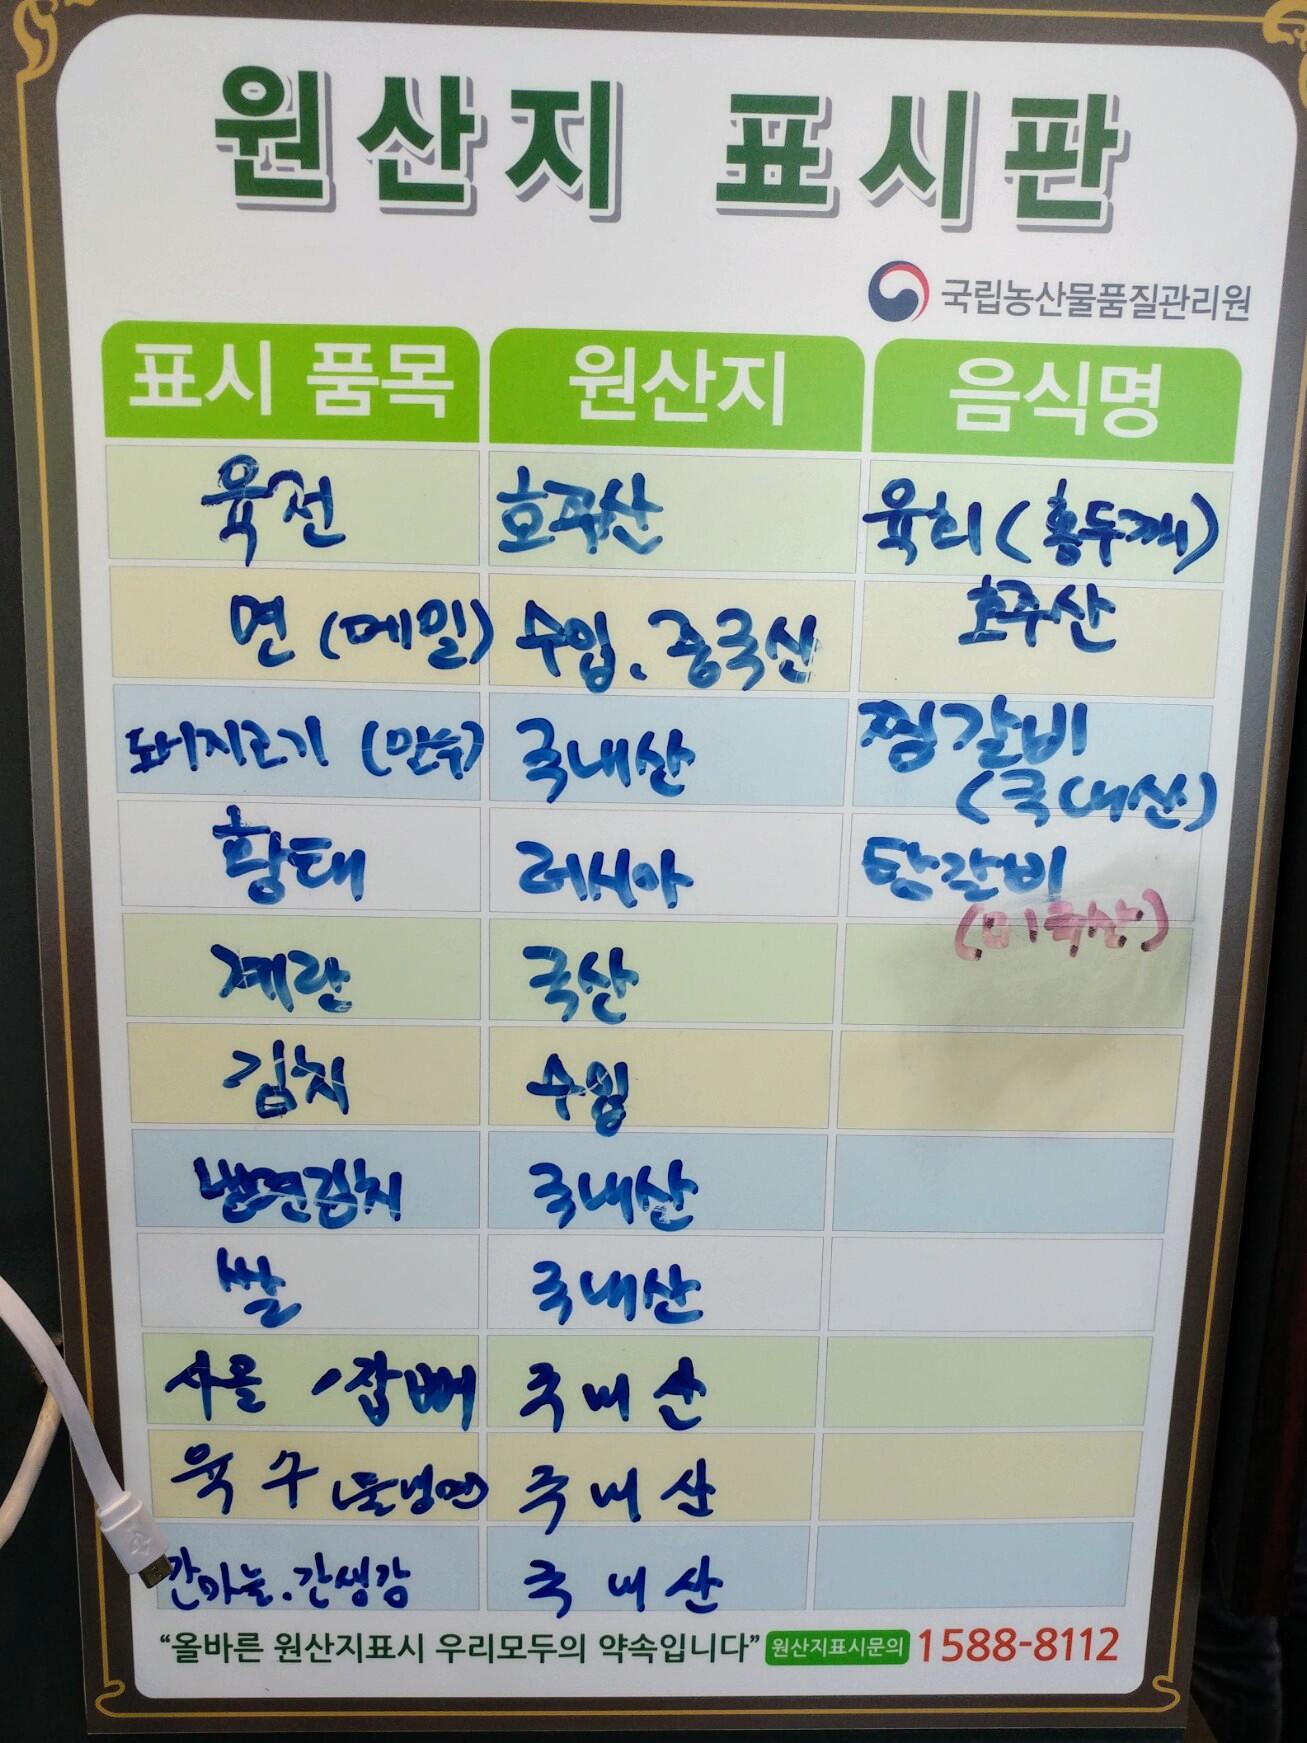 원산지 표시판
국립농산물품질관리원
표시 품목 원산지 음식명
육전 호주산 육회 (홍두깨)
면 (메밀) 수입. 중국산 호주산
돼지고기 (만두) 국내산 찜갈비
(국내산)
황태 러시아 탄갈비
(미국산)
계란 국산
김치 수입
냉면김치 국내산
쌀 국내산
사골 / 잡뼈 국내산
육수 (물냉면) 국내산
간마늘. 간생강 국내산
“올바른 원산지표시 우리모두의 약속입니다” 원산지표시문의 1588-8112